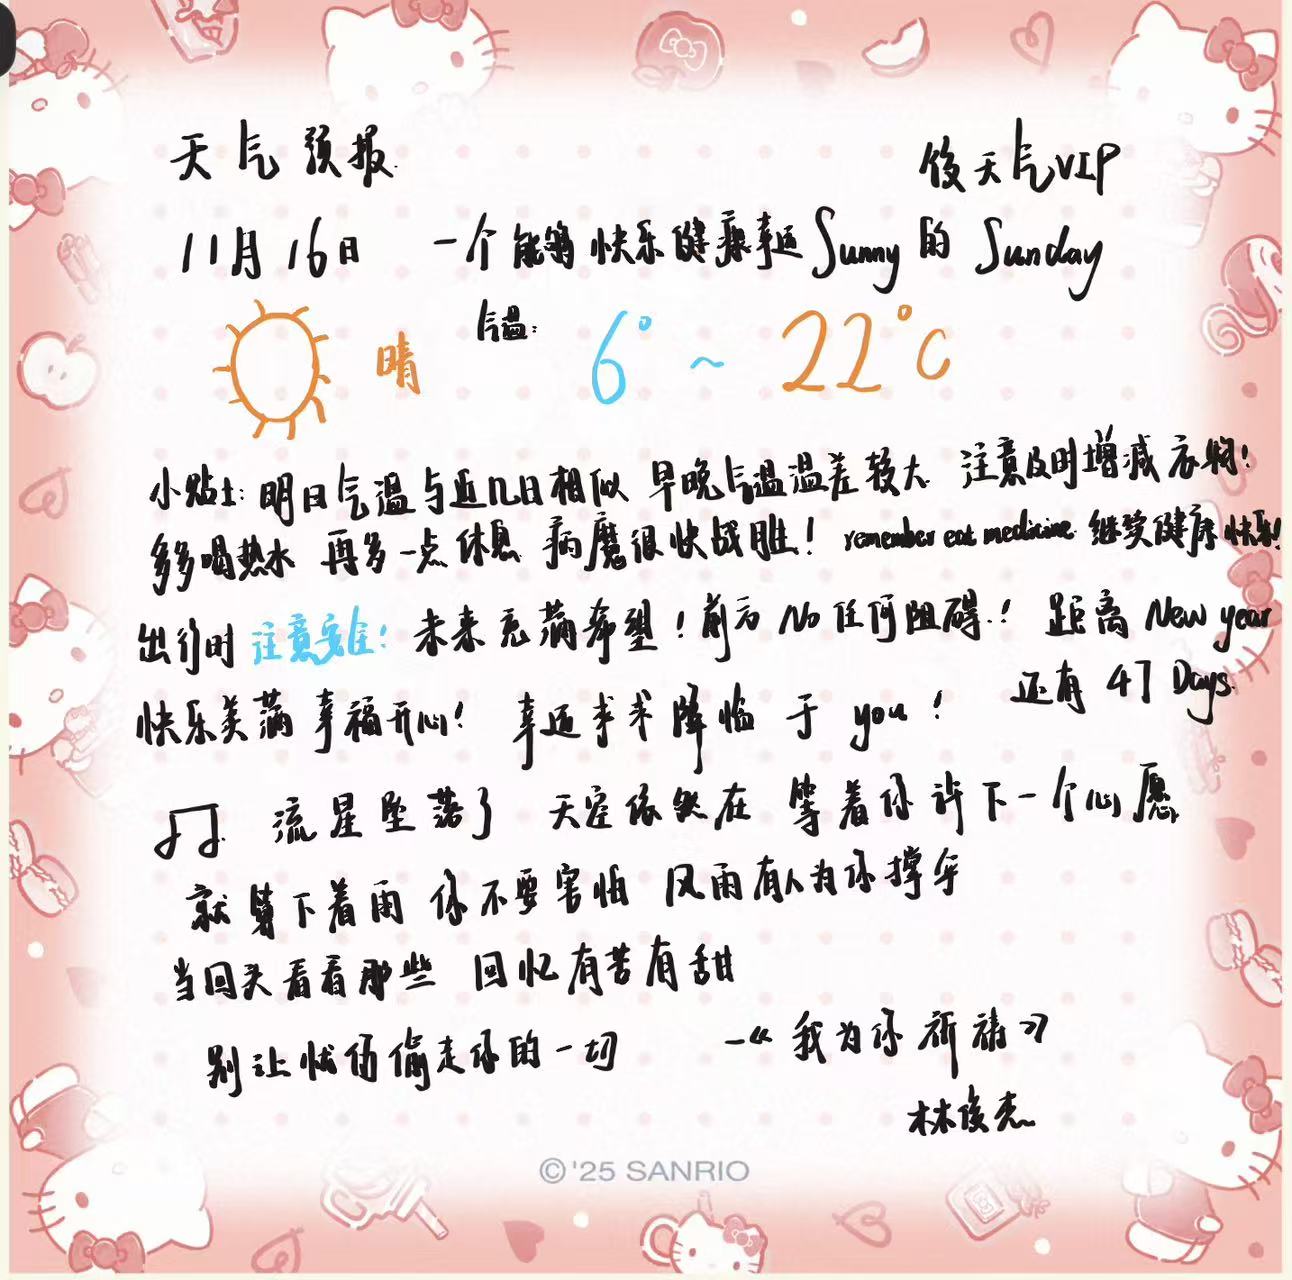 天气预报 俊天气VIP
11月16日 一个能够快乐健康幸运Sunny的Sunday
晴 气温: 6°~22°C
小贴士: 明日气温与近几日相似 早晚气温温差较大 注意及时增减衣物!
多多喝热水 再多一点休息 病魔很快战胜! remember eat medicine 继续健康快乐!
出行时 注意安全! 未来充满希望! 前方No任何阻碍! 距离New year
还有47Days.
快乐美满 幸福开心! 幸运求求降临于you!
流星坠落了 天空依然在 等着你许下一个心愿
就算下着雨 你不要害怕 风雨有人为你撑伞
当回头看看那些 回忆有苦有甜
别让忧伤偷走你的一切 —《我为你祈祷》
林俊杰
©'25 SANRIO